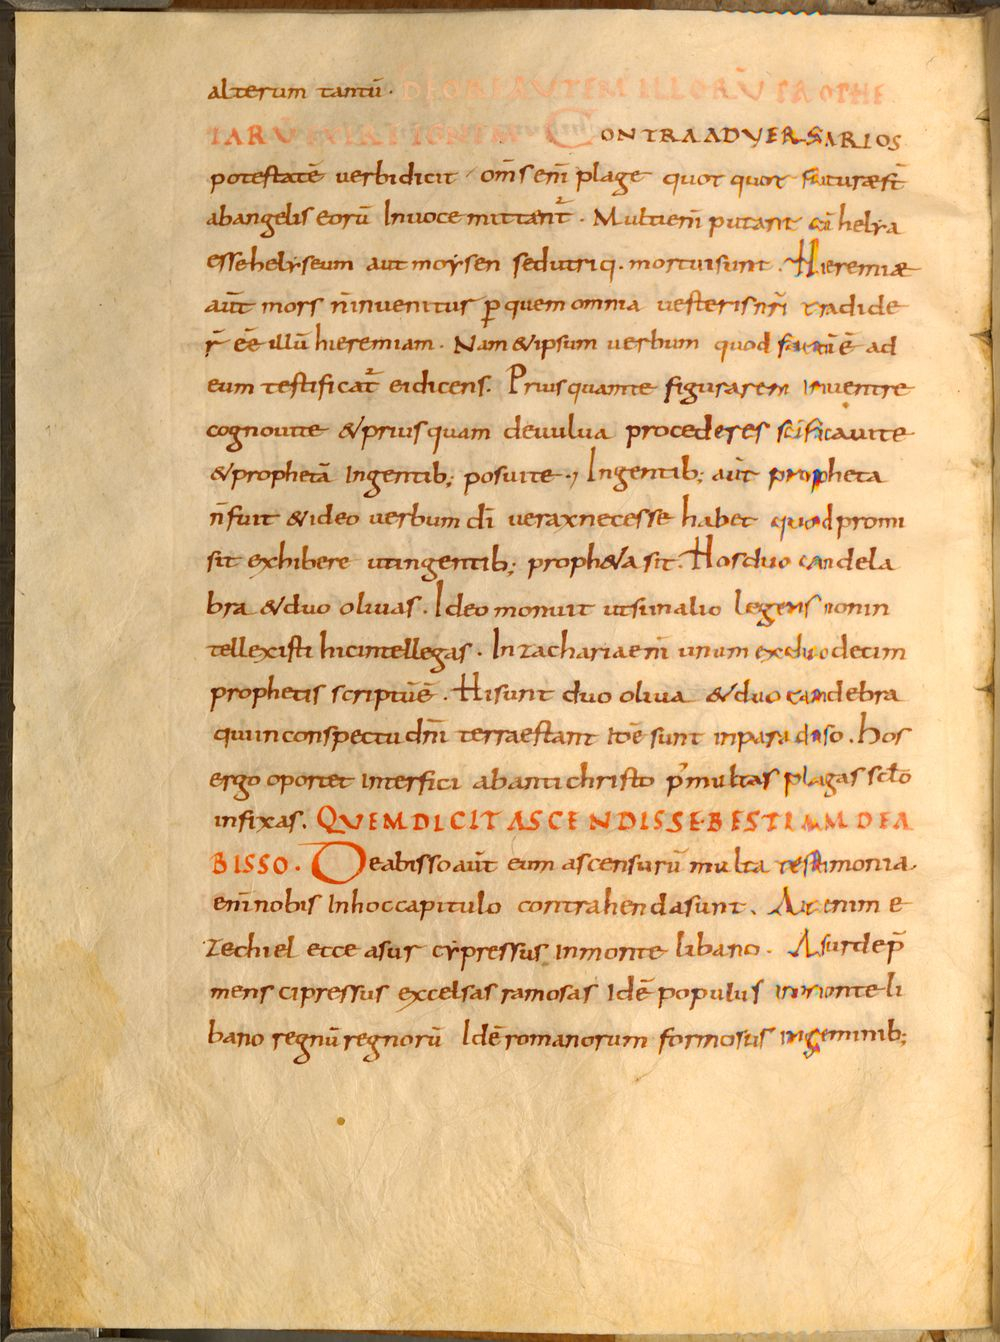 alterum tantū · DE ORE AUTEM ILLORŪ PROPHE
TARŪ CONTRA ADVERSARIOS
potestatē verbi dicit om̄s em̄ plage quot quot futuræ st̄
ab angelis eorū In voce mittant̄ · Multi em̄ putant cū helya
esse helyseum aut moysen sed utriq · mortui sunt · Hieremiæ
aūt mors n̄ invenitur p̱ quem omnia vesteris nr̄i tradide
r̄ eē illū hieremiam · Nam & ipsum verbum quod factū ē ad
eum testificat̄ ei dicens · Prius quam te figurarem in ventre
cognovi te & prius quam de vulva procederes sc̄ificavi te
& prophetā In gentib; posui te ·, In gentib; aūt propheta
n̄ fuit & ideo verbum dī verax necesse habet quod promi
sit exhibere ut in gentib; proph&a sit · Hos duo candela
bra & duo olivas · Ideo monuit ut si in alio legens non in
tellexisti hic intellegas · In zacharia em̄ unum ex duodecim
prophetis scriptū ē · Hi sunt duo oliva & duo candebra
qui in conspectu dn̄i terrae stant id ē sunt in paradiso · hos
ergo oportet interfici ab antichristo p̄ multas plagas sc̄lo
infixas · QUEM DICIT ASCENDISSE BESTIAM DE A
BISSO · De abisso aūt eum ascensurū multa testimonia
em̄ nobis In hoc capitulo contrahenda sunt · Ait enim e
zechiel ecce asur cypressus in monte libano · Asur dep̄
mens cipressus excelsas ramosas Id ē populus in monte li
bano regnū regnorū Id ē romanorum formosus in geminib;